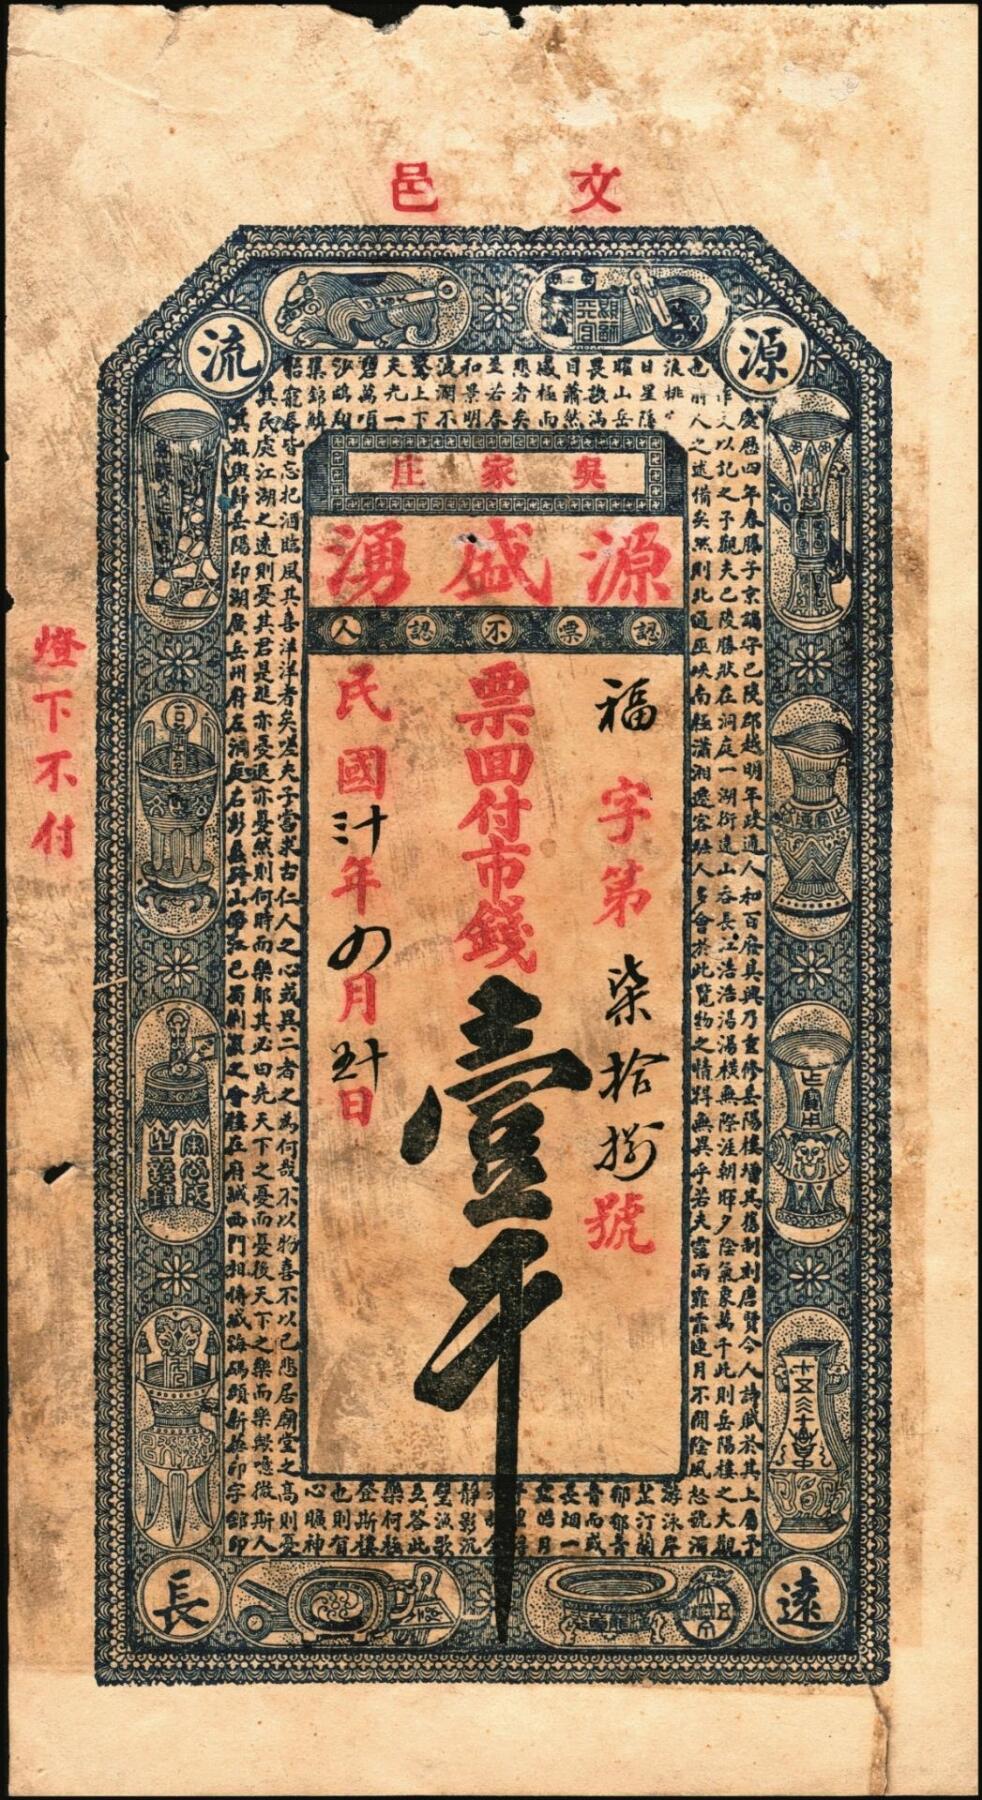 文邑
源遠流長
吳家庄
源盛湧
認票不認人
福字第柒拾捌號
票回付市錢壹千
民國十三年四月十五日
燈下不付
慶歷四年春滕子京謫守巴陵郡越明年政通人和百廢具興乃重修岳陽樓增其舊制刻唐賢今人詩賦於其上屬予
作文以記之予觀夫巴陵勝狀在洞庭一湖銜遠山吞長江浩浩湯湯橫無際涯朝暉夕陰氣象萬千此則岳陽樓之大觀
也前人之述備矣然則北通巫峽南極瀟湘遷客騷人多會於此覽物之情得無異乎若夫霪雨霏霏連月不開陰風怒號濁
浪排
日星隱
曜山岳
畏譏滿
目蕭然
感極而
悲者矣
至若春
和景明
波瀾不
驚上下
天光一
碧萬頃
沙鷗翔
集錦鱗
游泳岸
芷汀蘭
郁郁青
青而或
長烟一
空皓月
靜影沉
璧漁歌
互答此
樂何極
登斯樓
也則有
心曠神
怡寵辱皆忘把酒臨風其喜洋洋者矣嗟夫予嘗求古仁人之心或異二者之為何哉不以物喜不以己悲居廟堂之高則憂
其民處江湖之遠則憂其君是進亦憂退亦憂然則何時而樂耶其必曰先天下之憂而憂後天下之樂而樂歟噫微斯人
其誰與歸岳陽即湖廣岳州府左洞庭右彭蠡跨山帶江巴蜀荊襄之會樓在府城西門相傳威海碼頭新華印字館印